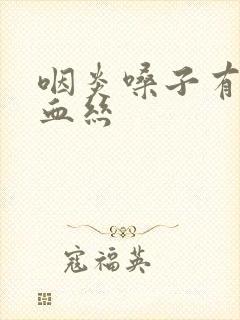 咽炎嗓子有
血丝
寇福英